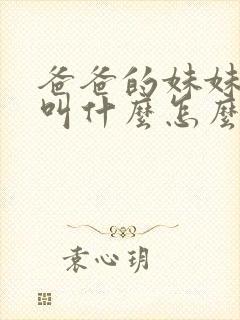 爸爸的妹妹
叫什麼怎麼
袁心玥